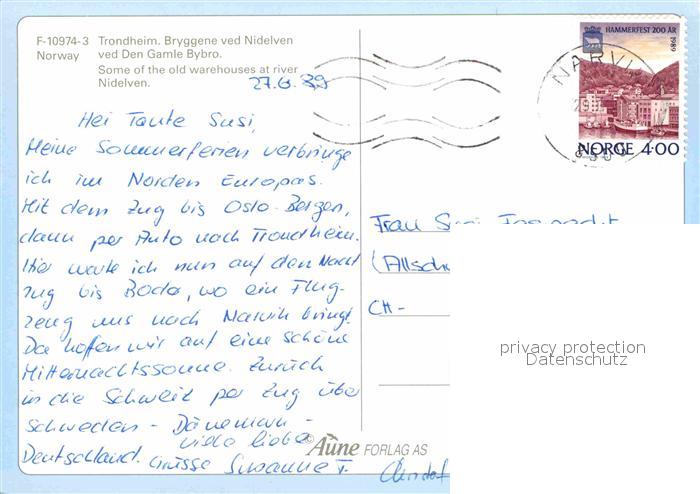 F-10974-3 Trondheim. Bryggene ved Nidelven
Norway ved Den Gamle Bybro.
Some of the old warehouses at river
Nidelven.
27.6.89
Hei Tante Susi,
Meine Sommerferien verbringe
ich im Norden Europas.
Mit dem Zug bis Oslo-Bergen,
dann per Auto nach Trondheim.
Hier warte ich nun auf den Nacht
zug bis Bodø, wo ein Flug-
zeug uns nach Narvik bringt.
Da hoffen wir auf eine schöne
Mitternachtssonne. Zurück
in die Schweiz per Zug über
Schweden - Dänemark -
Deutschland. viele liebe
Grüsse Susanne F.
HAMMERFEST 200 ÅR
1989
NORGE 4.00
NARVIK
Frau Susi
(Allsch
CH-
privacy protection
Datenschutz
© Aune FORLAG AS